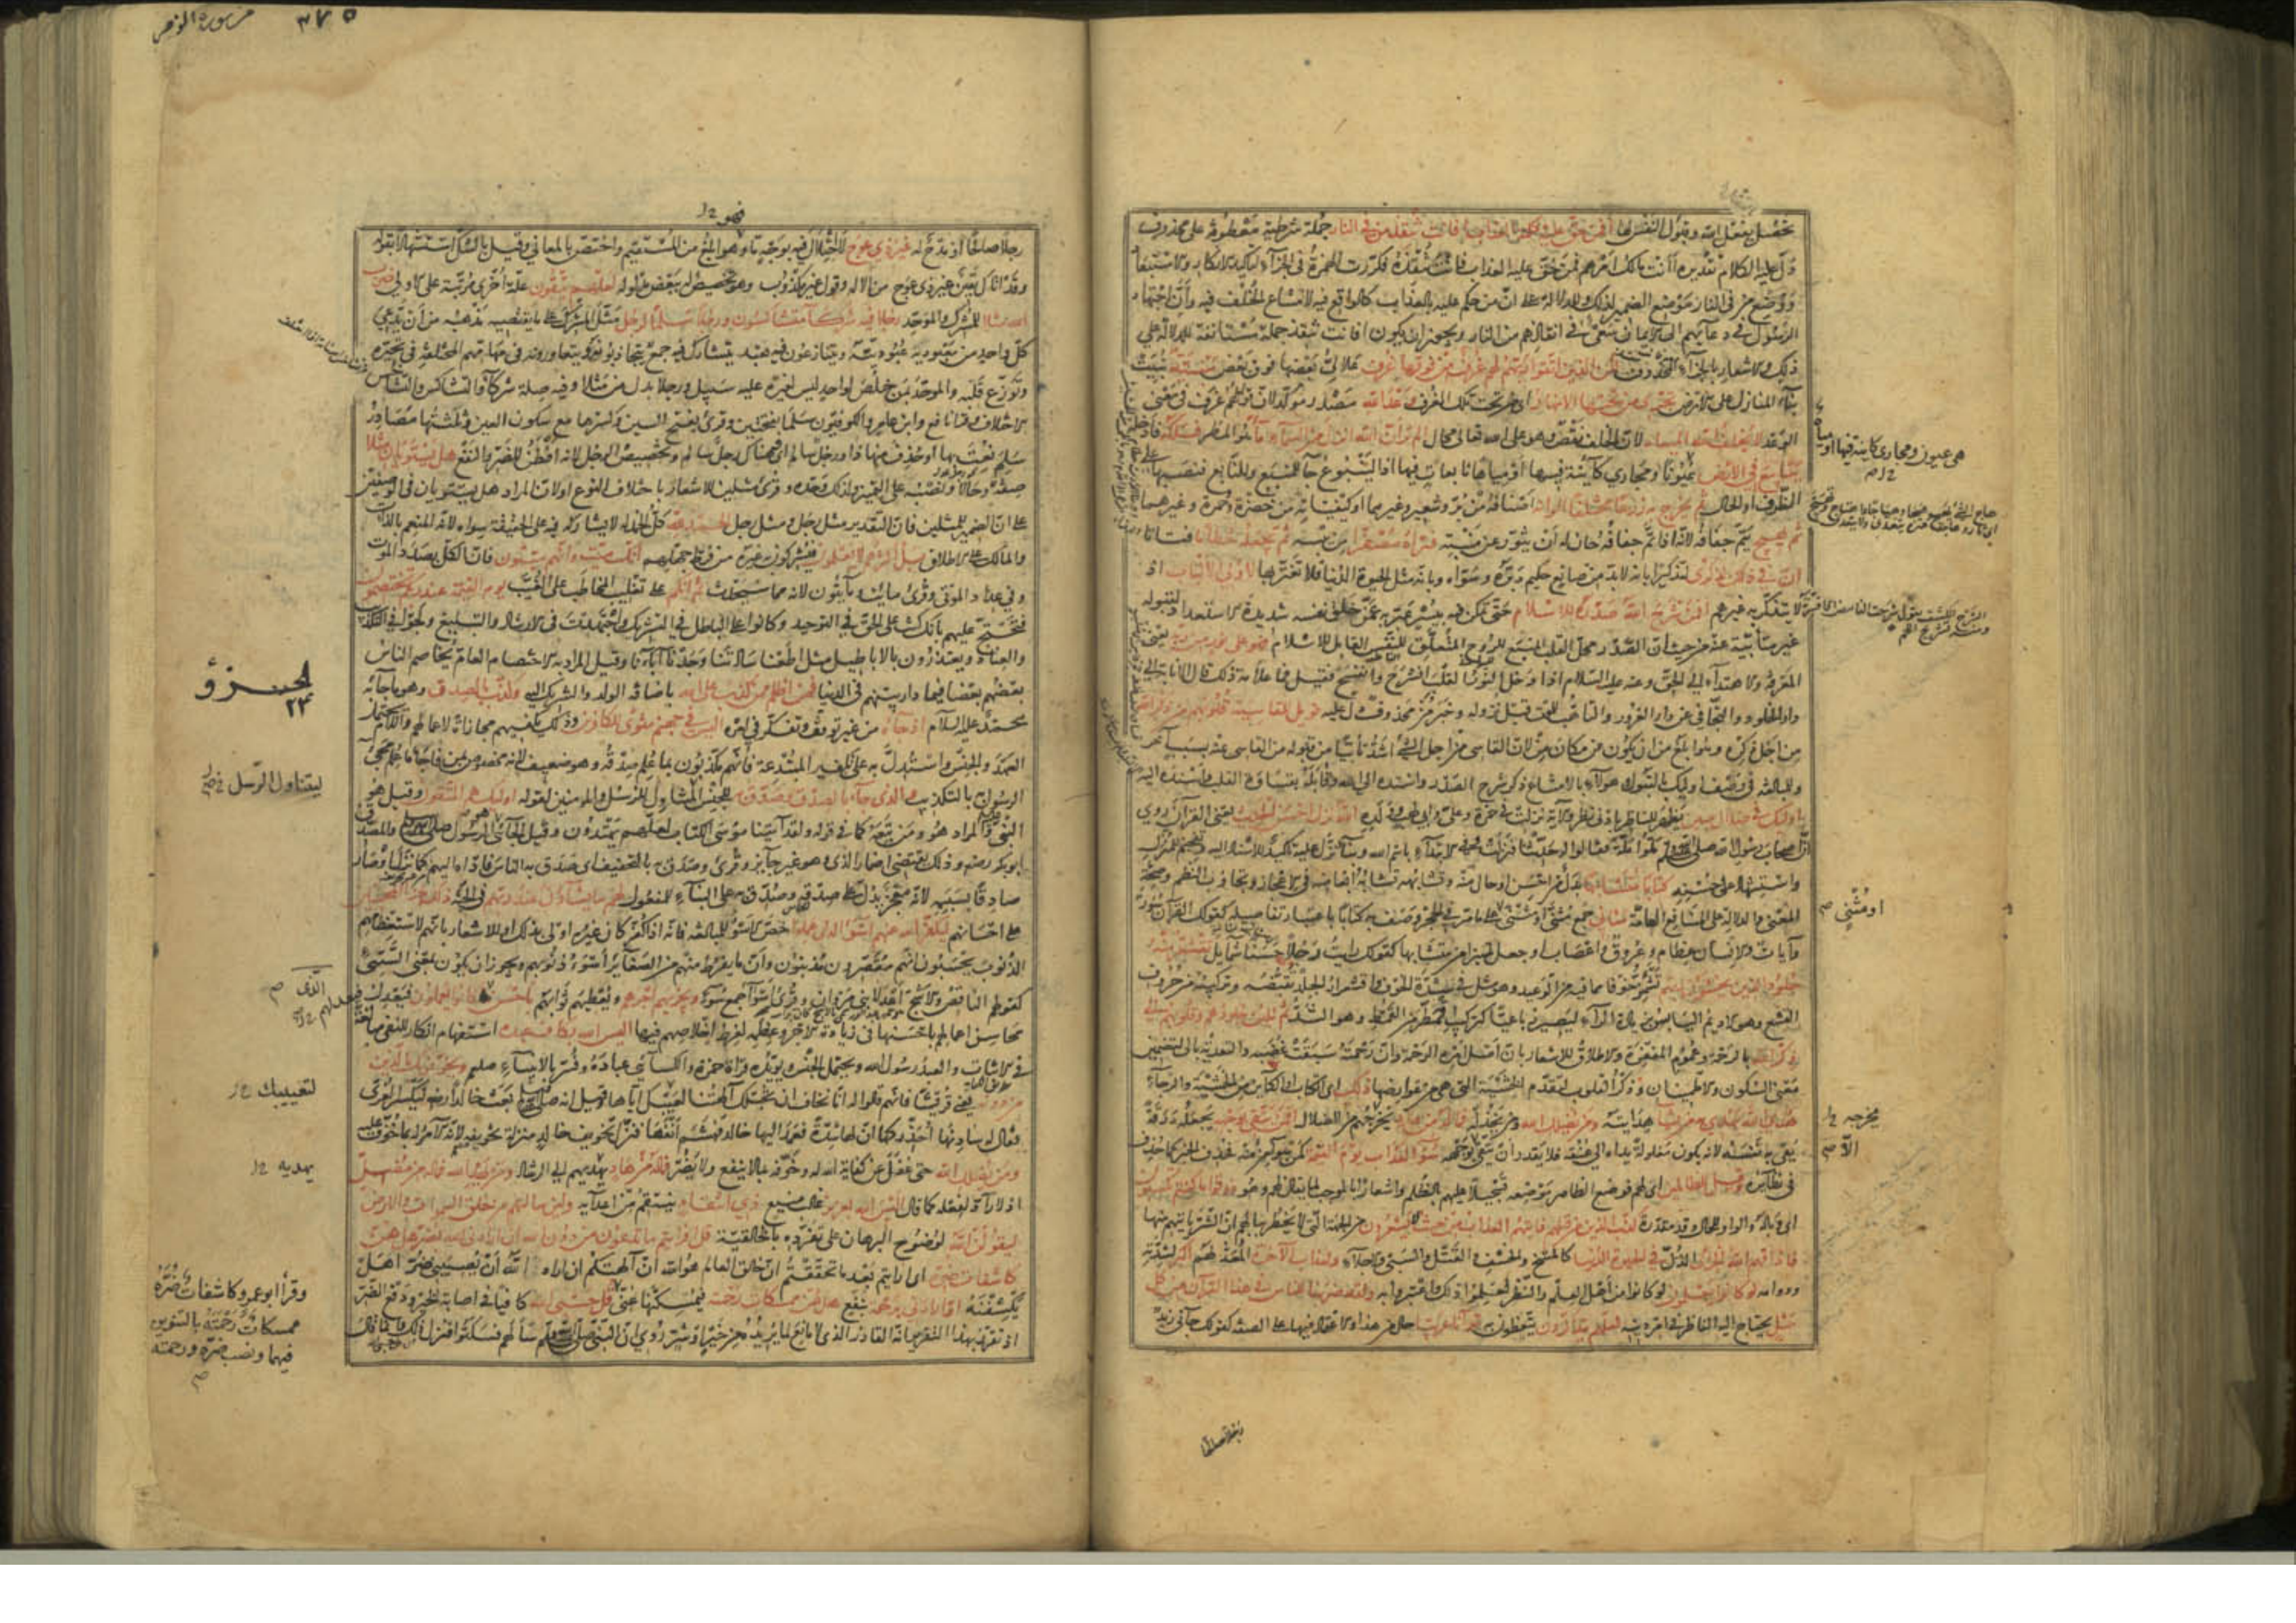 يحصل بفعل الله وقبول النفس لها أفمن حق عليه كلمة العذاب أفأنت تنقذ من في النار جملة شرطية معطوفة على محذوف
دل عليه الكلام تقديره أأنت مالك أمرهم فمن حق عليه العذاب فأنت تنقذه فكررت الهمزة في الجزاء لتأكيد الانكار والاستبعاد
ووضع من في النار موضع الضمير لذلك وللدلالة على ان من حكم عليه بالعذاب كالواقع فيه لامتناع الخلف فيه وأن اجتهاد
الرسول في دعائهم الى الايمان سعي في انقاذهم من النار ويجوز ان يكون افانت تنقذ جملة مستانفة للدلالة على
ذلك والاشعار بالجزاء المحذوف لكن الذين اتقوا ربهم لهم غرف من فوقها غرف علالي بعضها فوق بعض مبنية بنيت
بناء المنازل على الارض تجري من تحتها الانهار اي من تحت تلك الغرف وعد الله مصدر مؤكد لان قوله لهم غرف في معنى
الوعد لا يخلف الله الميعاد لان الخلف نقص وهو على الله تعالى محال الم تر ان الله انزل من السماء ماء هو المطر فسلكه فادخله
ينابيع في الارض عيونا ومجاري كائنة فيها أو مياها نابعات فيها اذ الينبوع جاء للمنبع وللنابع فنصبها على
الظرف او الحال ثم يخرج به زرعا مختلفا الوانه اصنافه من بر وشعير وغيرهما او كيفياته من خضرة وحمرة وغيرهما
ثم يهيج يتم جفافه لانه اذا تم جفافه حان له أن يثور عن منبته فتراه مصفرا من يبسه ثم يجعله حطاما فتاتا
ان في ذلك لذكرى لتذكيرا بانه لابد من صانع حكيم دبره وسواه وبانه مثل الحيوة الدنيا فلا تغتر بها لاولي الالباب اذ
لا يتذكر به غيرهم افمن شرح الله صدره للاسلام حتى تمكن فيه بيسر عبر به عمن خلق نفسه شديدة الاستعداد لقبوله
غير متأبية عنه من حيث أن الصدر محل القلب المنبع للروح المتعلق للنفس القابل للاسلام فهو على نور من ربه يعني
المعرفة والاهتداء إلى الحق وعنه عليه السلام اذا دخل النور القلب انشرح وانفسح فقيل فما علامة ذلك قال الانابة الى
دار الخلود والتجافي عن دار الغرور والتاهب للموت قبل نزوله وخبر من محذوف دل عليه فويل للقاسية قلوبهم من ذكر الله
من اجل ذكره وهو ابلغ من ان يكون عن مكان من لان القاسي من اجل الشئ اشد تأبيا من قبوله من القاسي عنه بسبب آخر
وللمبالغة في وصف اولئك بالقبول وهؤلاء بالامتناع ذكر شرح الصدر واسنده الى الله وقابله بقساوة القلب وأسنده اليه
اولئك في ضلال مبين يظهر للناظر بادنى نظر والآية نزلت في حمزة وعلي وابي لهب وولده الله نزل احسن الحديث يعني القرآن روي
ان اصحاب رسول الله صلى الله عليه وسلم ملوا ملة فقالوا له حدثنا فنزلت وفي الابتداء باسم الله وبناء نزل عليه تأكيد للاسناد اليه وتفخيم للمنزل
واستشهاد على حسنه كتابا متشابها بدل من احسن او حال منه وتشابهه تشابه ابعاضه في الاعجاز وتجاوب النظم وصحة
المعنى والدلالة على المنافع العامة مثاني جمع مثنى أو مثنى على ما مر في الحجر وصف به كتابا باعتبار تفاصيله كقولك القرآن سور
وآيات والانسان عظام وعروق واعصاب او جعل تمييزا من متشابها كقولك رايت رجلا حسنا شمايل تقشعر منه
جلود الذين يخشون ربهم تشمئز خوفا مما فيه من الوعيد وهو مثل في شدة الخوف واقشعرار الجلد تقبضه وتركيبه من حروف
القشع وهو الاديم اليابس بزيادة الراء ليصير رباعيا كتركيب اقمطر من القمط وهو الشد ثم تلين جلودهم وقلوبهم الى
ذكر الله بالرحمة وعموم المغفرة والاطلاق للاشعار بان اصل امره الرحمة وان رحمته سبقت غضبه والتعدية بالى لتضمين
معنى السكون والاطمينان وذكر القلوب لتقدم الخشية التي هي من عوارضها ذلك اى الكتاب او الكائن من الخشية والرجاء
هدى الله يهدي به من يشاء هدايته ومن يضلل الله ومن يخذله فما له من هاد يخرجهم من الضلال افمن يتقي بوجهه يجعله درقة
يقي به نفسه لانه يكون مغلولة يداه الى عنقه فلا يقدر أن يتقي الا بوجهه سوء العذاب يوم القيمة كمن هو آمن منه فحذف الخبر كما حذف
في نظائره وقيل للظالمين اى لهم فوضع الظاهر موضعه تسجيلا عليهم بالظلم واشعارا بالموجب لما يقال لهم وهو ذوقوا ما كنتم تكسبون
اى وباله والواو للحال وقد مقدرة كذب الذين من قبلهم فاتيهم العذاب من حيث لا يشعرون من الجهة التي لا يخطر ببالهم ان الشر يأتيهم منها
فاذاقهم الله الخزي الذل في الحيوة الدنيا كالمسخ والخسف والقتل والسبي والاجلاء ولعذاب الآخرة المعد لهم اكبر لشدته
ودوامه لو كانوا يعلمون لو كانوا من اهل العلم والنظر لعلموا ذلك واعتبروا به ولقد ضربنا للناس في هذا القرآن من كل
مثل يحتاج اليه الناظر في امر دينه لعلهم يتذكرون يتعظون به قرآنا عربيا حال من هذا والاعتماد فيها على الصفة كقولك جاءني زيد
هي عيون ومجاري كاينة فيها او مياه
او مثنى صح
يخرجه
الا صح
من سورة الزمر
٣٧٥
فهو
رجلا صالحا او مدح له غير ذي عوج لا اختلال فيه بوجه ما وهو ابلغ من المستقيم واختص بالمعاني وقيل بالشك استشهادا بقوله
وقد اتاك يقين غير ذي عوج من الاله وقول غير مكذوب وهو تخصيص له ببعض مدلوله لعلهم يتقون علة أخرى مرتبة على الاولى ضرب
الله مثلا للمشرك والموحد رجلا فيه شركاء متشاكسون ورجلا سلما لرجل مثل المشرك على ما يقتضيه مذهبه من أن يدعي
كل واحد من معبوديه عبوديته ويتنازعون فيه بعبد يتشارك فيه جمع يتجاذبونه ويتعاورونه في مهامهم المختلفة في تحيره
وتوزع قلبه والموحد بمن خلص لواحد ليس لغيره عليه سبيل ورجلا بدل من مثلا وفيه صلة شركاء والتشاكس والتشاخس
الاختلاف وقرا نافع وابن عامر والكوفيون سلما بفتحتين وقرئ بفتح السين وكسرها مع سكون العين وثلثتها مصادر
سلم نعت بها او حذف منها ذا ورجل سالم اى وهناك رجل سالم وتخصيص الرجل لانه افطن للضر والنفع هل يستويان مثلا
صفة وحالا ونصبه على التمييز ولذلك وحده وقرئ مثلين للاشعار باختلاف النوع او لان المراد هل يستويان في الوصفين
على ان الضمير للمثلين فان التقدير مثل رجل ومثل رجل الحمد لله كل الحمد له لا يشاركه فيه على الحقيقة سواه لانه المنعم بالذات
والمالك على الاطلاق بل اكثرهم لا يعلمون فيشركون به غيره من فرط جهلهم انك ميت وانهم ميتون فان الكل بصدد الموت
وفي عداد الموتى وقرئ مائت ومايتون لانه مما سيحدث ثم انكم على تغليب المخاطب على الغيب يوم القيمة عند ربكم تختصمون
فتحتج عليهم بأنك كنت على الحق في التوحيد وكانوا على الباطل في التشريك واجتهدت في الارشاد والتبليغ ولجوا في التكذيب
والعناد ويعتذرون بالاباطيل مثل اطعنا سادتنا ووجدنا آباءنا وقيل المراد به الاختصام العام يخاصم الناس
بعضهم بعضا فيما دار بينهم في الدنيا فمن اظلم ممن كذب على الله باضافة الولد والشريك اليه وكذب بالصدق وهو ما جاء به
محمد عليه السلام اذ جاءه من غير توقف وتفكر في امره اليس في جهنم مثوى للكافرين وذلك يكفيهم مجازاة لاعمالهم واللام تحتمل
العهد والجنس واستدل به على تكفير المبتدعة فانهم مكذبون بما علم صدقه وهو ضعيف لانه مخصوص بمن فاجأ ما علم مجئ
الرسول به بالتكذيب والذي جاء بالصدق وصدق به للجنس المتناول للرسل والمومنين لقوله اولئك هم المتقون وقيل هو
النبي والمراد هو ومن تبعه كما في قوله ولقد آتينا موسى الكتاب لعلهم يهتدون وقيل الجائي هو الرسول صلى الله عليه وسلم والمصدق
ابو بكر رضه وذلك يقتضي اضمار الذي وهو غير جايز وقرئ وصدق به بالتخفيف اى صدق به الناس فاداه اليهم كما نزل او صار
صادقا بسببه لانه معجز يدل على صدقه وصدق به على البناء للمفعول لهم ما يشاءون عند ربهم في الجنة ذلك جزاء المحسنين
على احسانهم ليكفر الله عنهم اسوأ الذي عملوا خص الاسوأ للمبالغة فانه اذا كفر كان غيره اولى بذلك او للاشعار بانهم لاستعظامهم
الذنوب يحسبون انهم مقصرون مذنبون وأن ما يفرط منهم من الصغائر أسوء ذنوبهم ويجوز ان يكون بمعنى السيئ
كقولهم الناقص والاشج اعدلا بني مروان وقرئ اسواء جمع سوء ويجزيهم اجرهم ويعطيهم ثوابهم باحسن الذي كانوا يعملون فيعد لهم
محاسن اعمالهم باحسنها في زيادة الاجر وعظمه لفرط اخلاصهم فيها اليس الله بكاف عبده استفهام انكار للنفي مبالغة
في الاثبات والعبد رسول الله ويحتمل الجنس ويؤيده قراءة حمزة والكسائي عباده وفسر بالانبياء صلعم ويخوفونك بالذين
من دونه يعني قريشا فانهم قالوا له انا نخاف ان تخبلك آلهتنا لعيبك اياها وقيل انه صلى الله عليه وسلم بعث خالدا رضه ليكسر العزى
فقال له سادنها أحذركها ان لها شدة فعمد اليها خالد فهشم أنفها فنزل تخويف خالد منزلة تخويفه لانه الآمر له بما خوف عليه
ومن يضلل الله حتى غفل عن كفاية الله له وخوفه بما لا ينفع ولا يضر فما له من هاد يهديهم الى الرشاد ومن يهد الله فما له من مضل
اذ لا راد لفعله كما قال اليس الله بعزيز غالب منيع ذي انتقام ينتقم من اعدائه ولئن سالتهم من خلق السموات والارض
ليقولن الله لوضوح البرهان على تفرده بالخالقية قل افرايتم ما تدعون من دون الله ان ارادني الله بضر هل هن
كاشفات ضره اى ارايتم بعد ما تحققتم ان خالق العالم هو الله أن آلهتكم ان اراد الله أن يصيبني ضر اهل
يكشفنه او ارادني برحمة بنفع هل هن ممسكات رحمته فيمسكنها عني قل حسبي الله كافيا في اصابة الخير ودفع الضر
اذ تقرر بهذا التقرير انه القادر الذي لا مانع لما يريده من خير او شر روي ان النبي صلى الله عليه وسلم سألهم فسكتوا فنزل ذلك وانما قال
الجزؤ
٢٤
ليتناول الرسل صح
الذي صح
لتعييبك
يهديه
وقرأ ابو عمرو كاشفات ضره
ممسكات رحمته بالتنوين
فيهما ونصب ضره ورحمته
صح